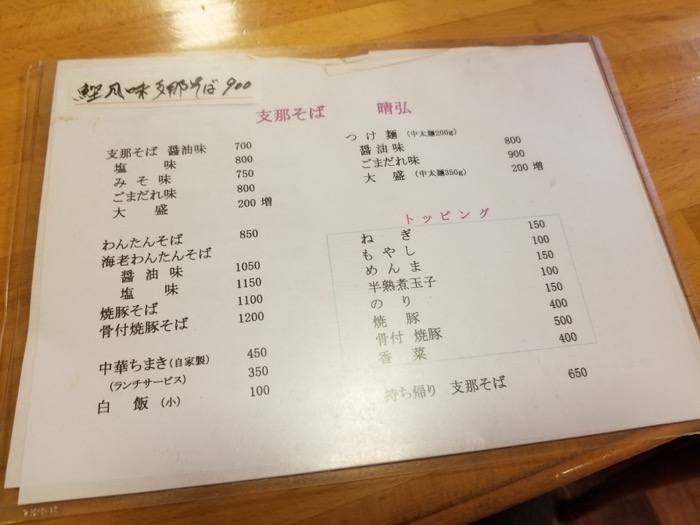 鰹風味支那そば 900
支那そば 晴弘
支那そば 醤油味 700
塩味 800
みそ味 750
ごまだれ味 800
大盛 200 増
わんたんそば 850
海老わんたんそば
醤油味 1050
塩味 1150
焼豚そば 1100
骨付焼豚そば 1200
中華ちまき(自家製) 450
(ランチサービス) 350
白飯 (小) 100
つけ麺 (中太麺200g)
醤油味 800
ごまだれ味 900
大盛 (中太麺350g) 200 増
トッピング
ねぎ 150
もやし 100
めんま 150
半熟煮玉子 100
のり 150
焼豚 400
骨付 焼豚 500
香菜 400
持ち帰り 支那そば 650